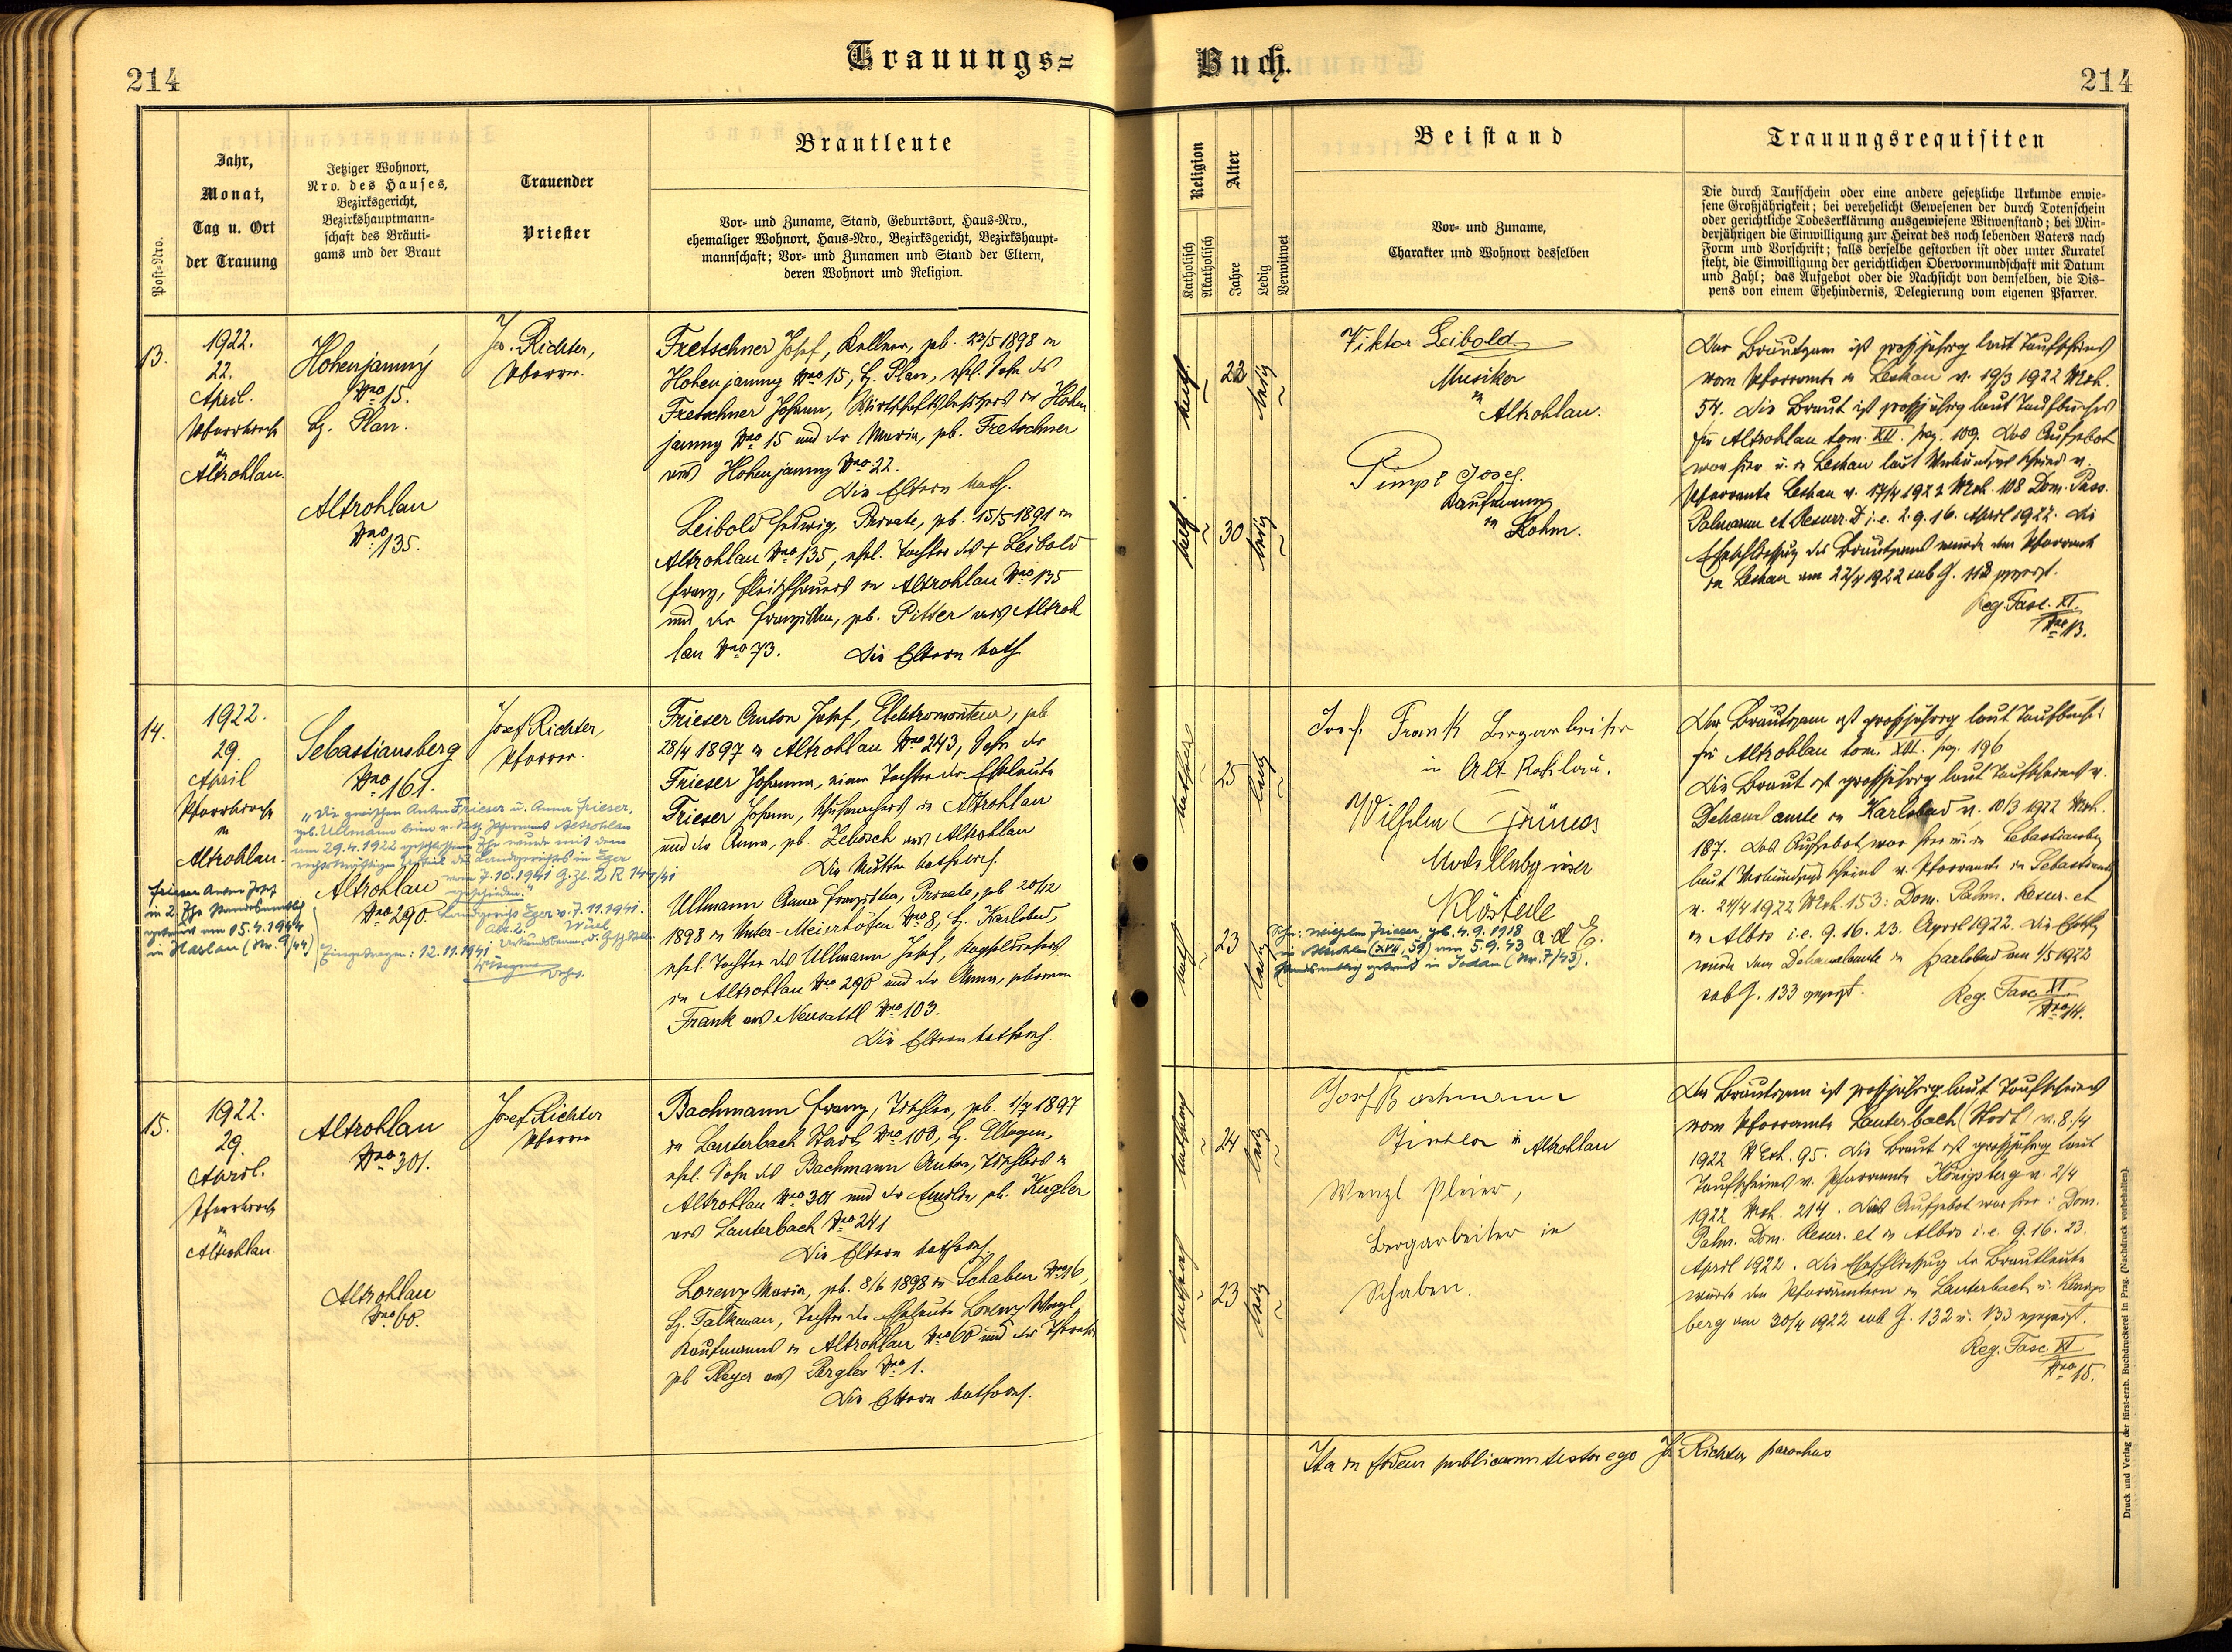 Trauungs=
Buch.
214
214
Post-Nro.
Jahr,
Monat,
Tag u. Ort
der Trauung
Jetziger Wohnort,
Nro. des Hauses,
Bezirksgericht,
Bezirkshauptmann-
schaft des Bräuti-
gams und der Braut
Trauender
Priester
Brautleute
Vor- und Zuname, Stand, Geburtsort, Haus-Nro.,
ehemaliger Wohnort, Haus-Nro., Bezirksgericht, Bezirkshaupt-
mannschaft; Vor- und Zunamen und Stand der Eltern,
deren Wohnort und Religion.
Religion
Katholisch
Akatholisch
Alter
Jahre
Ledig
Verwitwet
Beistand
Vor- und Zuname,
Charakter und Wohnort desselben
Trauungsrequisiten
Die durch Taufschein oder eine andere gesetzliche Urkunde erwie-
sene Großjährigkeit; bei verehelicht Gewesenen der durch Totenschein
oder gerichtliche Todeserklärung ausgewiesene Witwenstand; bei Min-
derjährigen die Einwilligung zur Heirat des noch lebenden Vaters nach
Form und Vorschrift; falls derselbe gestorben ist oder unter Kuratel
steht, die Einwilligung der gerichtlichen Obervormundschaft mit Datum
und Zahl; das Aufgebot oder die Nachsicht von demselben, die Dis-
pens von einem Ehehindernis, Delegierung vom eigenen Pfarrer.
13.
1922.
22.
April.
Pfarrkirche
in
Altrohlau.
Hohenjamny
Nro 15.
Bz. Plan.
Altrohlau
Nro 135.
Jos. Richter,
Pfarrer.
Fretschner Josef, Kellner, geb. 23/5 1898 in
Hohenjamny Nro 15, Bz. Plan, ehel. Sohn des
Fretschner Johann, Wirtschaftsbesitzers in Hohen
jamny Nro 15 und der Maria, geb. Fretschner
aus Hohenjamny Nro 22.
Die Eltern kath.
Leibold Hedwig, Private, geb. 15/5 1891 in
Altrohlau Nro 135, ehel. Tochter des + Leibold
Franz, Fleischhauers in Altrohlau Nro 135
und der Franziska, geb. Pitter aus Altroh
lau Nro 73. Die Eltern kath.
kath.
23
ledig
kath.
30
ledig
Viktor Leibold
Musiker
in
Altrohlau.
Pimpl Josef.
Kaufmann
in Lohm.
Der Bräutigam ist großjährig laut Taufscheines
vom Pfarramte in Leskau v. 19/3 1922 Mh.
54. Die Braut ist großjährig laut Taufbuches
für Altrohlau tom. XII. pag. 109. Das Aufgebot
war hier u. in Leskau laut Verkündigschein v.
Pfarramte Leskau v. 17/4 1922 Mh. 108 Dom. Pass.
Palmarum et Resurr. D. i. e. 2. 9. 16. April 1922. Die
Eheschließung des Bräutigams wurde dem Pfarramte
in Leskau am 22/4 1922 sub G. 118 angezeigt.
Reg. Fasc. XI.
Nro 13.
14.
1922.
29.
April
Pfarrkirche
in
Altrohlau.
Sebastiansberg
Nro 161.
Altrohlau
Nro 290
"Die zwischen Anton Frieser u. Anna Frieser,
geb. Ullmann beim r. kath. Pfarramt Altrohlau
am 29.4.1922 geschlossene Ehe wurde mit dem
rechtskräftigen Urteil des Landgerichtes in Eger
vom 7.10.1941 G.Zl. 2 R 147/41
geschieden."
Landgericht Eger v. 7.11.1941.
Abt. 2.
Eingetragen: 12.11.1941
Frieser Anton Josef
in 2. Ehe standesamtlich
getraut am 15.4.1944
in Haslau (Nr. 9/44)
Josef Richter,
Pfarrer.
Frieser Anton Josef, Elektromonteur, geb.
28/4 1897 in Altrohlau Nro 243, Sohn der
Frieser Johanna, einer Tochter der Eheleute
Frieser Johann, Schuhmachers in Altrohlau
und der Anna, geb. Zebisch aus Altrohlau
Die Mutter katholisch.
Ullmann Anna Franziska, Private, geb. 20/12
1898 in Unter-Meierhöfen Nro 8, Bz. Karlsbad,
ehel. Tochter des Ullmann Josef,
in Altrohlau Nro 290 und der Anna, geborenen
Frank aus Neusattl Nro 103.
Die Eltern katholisch.
katholisch
25
ledig
kath.
23
ledig
Josef Frank Bergarbeiter
in Alt Rohlau.
Wilhelm Grünes
Modellabgießer
Klösterle
a. d. E.
Sohn: Wilhelm Frieser, geb. 4.9.1918
in Altrohlau (XVI, 59) am 5.9.43
standesamtlich getraut in Sodau (Nr. 7/43).
Der Bräutigam ist großjährig laut Taufbuches
für Altrohlau tom. XII. pag. 196
Die Braut ist großjährig laut Taufscheines v.
Dekanalamte in Karlsbad v. 10/3 1922 Mh.
187. Das Aufgebot war hier u. in Sebastiansberg
laut Verkündigschein v. Pfarramte in Sebastiansberg
v. 24/4 1922 Mh. 153: Dom. Palm. Resur. et
in Albis i. e. 9. 16. 23. April 1922. Die Eheschlg
wurde dem Dekanalamte in Karlsbad am 1/5 1922
sub G. 133 angezeigt.
Reg. Fasc. XI
Nro 14.
15.
1922.
29.
April.
Pfarrkirche
in
Altrohlau
Altrohlau
Nro 301.
Altrohlau
Nro 60.
Josef Richter
Pfarrer
Bachmann Franz, Tischler, geb. 1/7 1897
in Lauterbach Stadt Nro 100, Bz. Elbogen,
ehel. Sohn des Bachmann Anton, Tischlers in
Altrohlau Nro 301 und der Emilie, geb. Kugler
aus Lauterbach Nro 241.
Die Eltern katholisch.
Lorenz Maria, geb. 8/6 1898 in Schaben Nro 16,
Bz. Falkenau, Tochter der Eheleute Lorenz Wenzl,
Kaufmanns in Altrohlau Nro 60 und der Theresia
geb. Pleyer aus Perglas Nro 1.
Die Eltern katholisch.
katholisch
24
ledig
katholisch
23
ledig
Josef Bachmann
Tischler in Altrohlau
Wenzl Pleier,
Bergarbeiter in
Schaben.
Der Bräutigam ist großjährig laut Taufscheines
vom Pfarramte Lauterbach Stadt v. 8./4
1922 Mh. 95. Die Braut ist großjährig laut
Taufscheines v. Pfarramte Königsberg v. 2/4
1922 Mh. 214. Das Aufgebot war hier: Dom.
Palm. Dom. Resur. et in Albis i. e. 9. 16. 23.
April 1922. Die Eheschließung der Brautleute
wurde den Pfarrämtern in Lauterbach u. Königs
berg am 30/4 1922 sub G. 132 u. 133 angezeigt.
Reg. Fasc. XI
Nro 15.
Ita in fidem publicam testor ego Jos. Richter parochus
Druck und Verlag der fürst-erzb. Buchdruckerei in Prag. (Nachdruck vorbehalten).